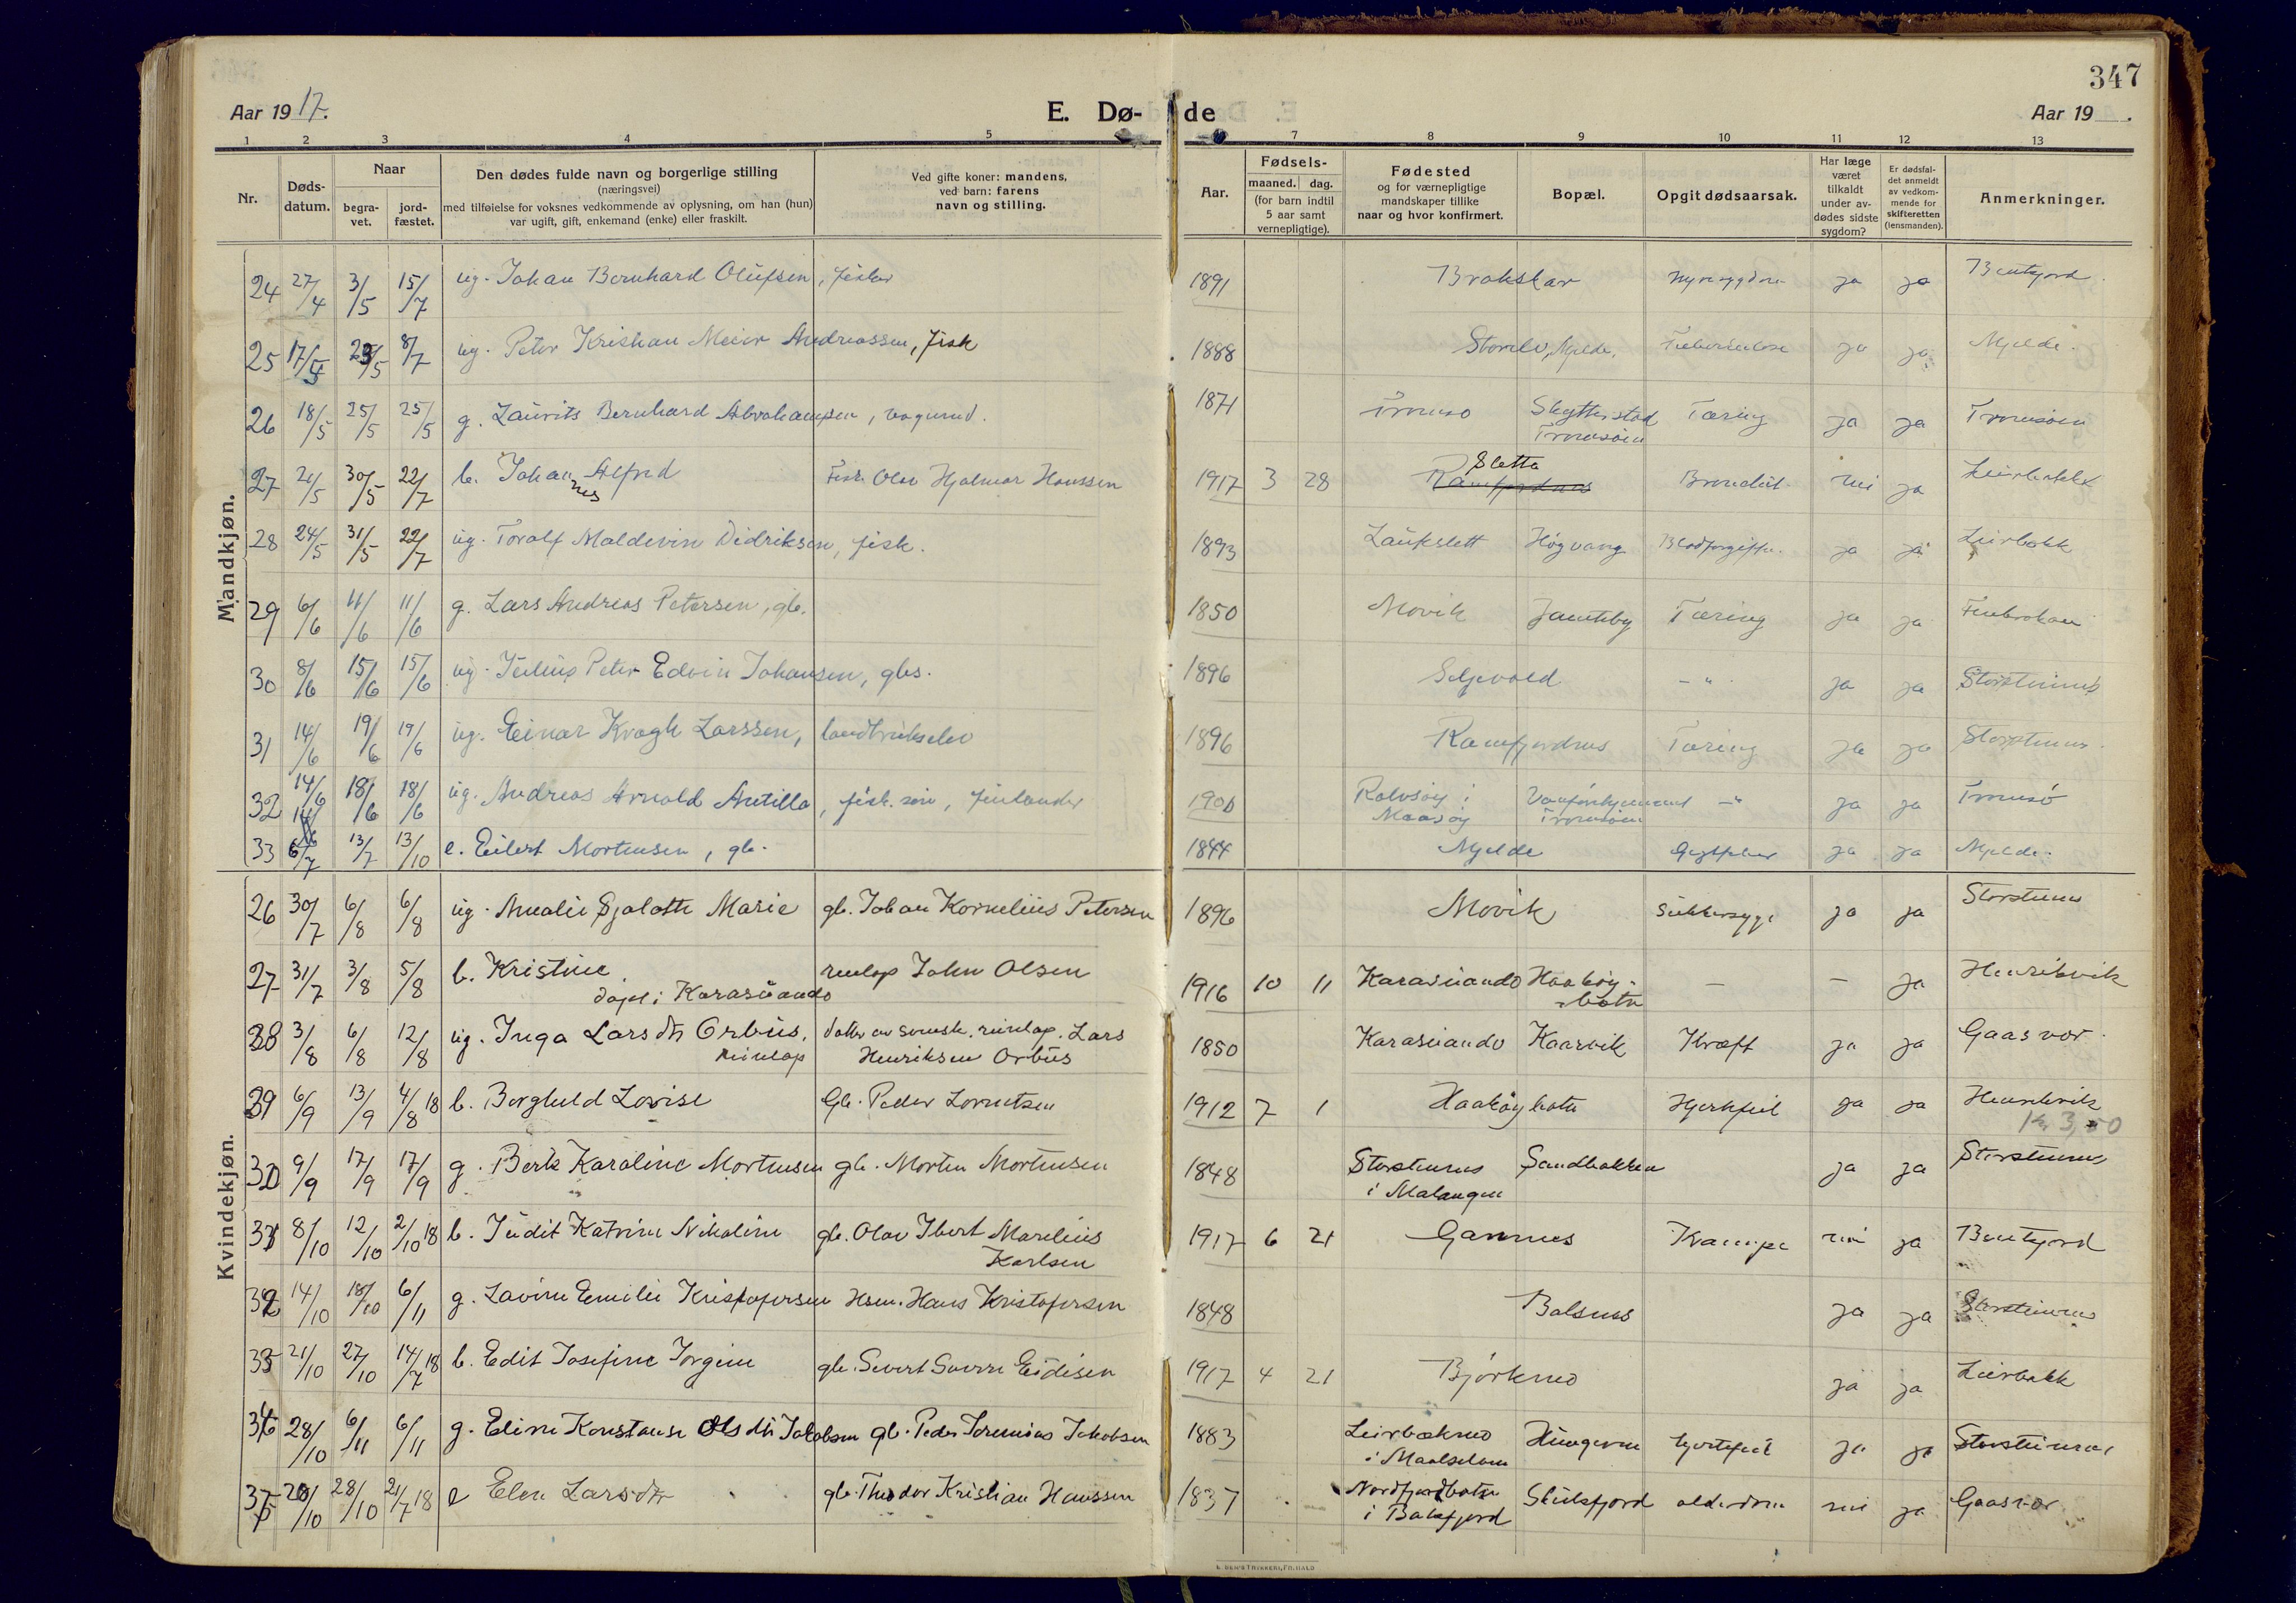 347
Aar 1917. E. Dø- de Aar 19 .
1 2 3 4 5 7 8 9 10 11 12 13
Nr.
Døds-
datum.
Naar
begra-
vet.
jord-
fæstet.
Den dødes fulde navn og borgerlige stilling
(næringsvei)
med tilføielse for voksnes vedkommende av oplysning, om han (hun)
var ugift, gift, enkemand (enke) eller fraskilt.
Ved gifte koner: mandens,
ved barn: farens
navn og stilling.
Aar.
Fødsels-
maaned. dag.
(for barn indtil
5 aar samt
vernepligtige).
Fødested
og for værnepligtige
mandskaper tillike
naar og hvor konfirmert.
Bopæl.
Opgit dødsaarsak.
Har læge
været
tilkaldt
under av-
dødes sidste
sygdom?
Er dødsfal-
det anmeldt
av vedkom-
mende for
skifteretten
(lensmanden).
Anmerkninger.
Mandkjøn.
24 27/4 3/5 15/7 ug. Johan Bernhard Olufsen, fisker 1891 Brokskar Nyresygdom ja ja Bentsjord
25 17/5 25/5 8/7 ug. Peter Kristian Meier Andreassen, fisk 1888 Storelv, Mjelde. Tuberkulose ja ja Mjelde.
26 18/5 25/5 25/5 g. Laurits Bernhard Abrahamsen, vognmd. 1871 Tromsø Skytterstad Tæring ja ja Tromsøen
Tromsøen
27 21/5 30/5 22/7 b. Johannes Alfred Fisk. Olav Hjalmar Hanssen 1917 3 28 Sletta Bronchit. nei ja Leirbakk
Ramfjordnes
28 24/5 31/5 22/7 ug. Toralf Maldevin Didriksen, fisk. 1893 Laukslett Høgvang Blodforgiftn. ja ja Leirbakk
29 6/6 11/6 11/6 g. Lars Andreas Petersen, gb. 1850 Movik Jamteby Tæring ja ja
30 8/6 15/6 15/6 ug. Julius Peter Edvin Johansen, gbs. 1896 Seljevold - " - ja ja Storsteinnes
31 14/6 19/6 19/6 ug. Einar Kragh Larssen, landbrukselev 1896 Ramfjordnes Tæring ja ja Storsteinnes.
32 14/6 18/6 18/6 ug. Andreas Arnold Antilla, fisk. søn, finlænder Rolvsøy i Vanførehjemmet - " ja ja Tromsø
Maasøy Tromsøen
33 6/7 13/7 13/10 e. Eilert Mortensen, gb. 1844 Mjelde Gigtfeber ja ja Mjelde.
Kvindekjøn.
26 30/7 6/8 6/8 ug. Amalie Sjalotte Marie gb. Johan Kornelius Petersen 1896 Movik Sukkersyge ja ja Storsteinnes
27 31/7 3/8 5/8 b. Kristine renlap John Olsen 1916 10 11 Karasuando Haakøy- — — ja Henrikvik
døpt i Karasuando botn
28 3/8 6/8 12/8 ug. Inga Larsdtr Orbus. datter av svensk. reinlap. Lars 1850 Karasuando Kaarvik Kræft ja ja Gaasvær.
reinlap Henriksen Orbus
29 6/9 13/9 4/8 18 b. Borghild Lovise Gb. Peder Lorentsen 1912 7 1 Haakøybotn Hjertefeil ja ja Henrikvik
Kr. 3,50
30 9/9 17/9 17/9 g. Berit Karoline Mortensen gb. Morten Mortensen 1848 Storsteinnes Sandbakken ja ja Storsteinnes
i Malangen
31 8/10 12/10 2/10 18 b. Judit Katrine Nikoline gb. Olav Ibert Marelius 1917 6 21 Gamnes Krampe nei ja Bentsjord
Karlsen
32 14/10 18/10 6/11 g. Lavine Emilie Kristofersen Hsm. Hans Kristofersen 1848 Balsnes ja ja Storsteinnes
33 21/10 27/10 14/7 18 b. Edit Josefine Jorgine gb. Sivert Sverre Eidisen 1917 4 21 Bjørkmo ja ja Leirbakk
34 28/10 6/11 6/11 g. Eline Konstanse Olsdtr Jakobsen gb. Peder Jeremias Jakobsen 1883 Leirbækmo hjertefeil ja ja Storsteinnes
i Maalselven
35 20/10 28/10 21/7 18 e Elen Larsdtr gb. Theodor Kristian Hanssen 1837 Nordfjordbotn Skulsfjord alderdom nei ja Gaasvær
i Balsfjord